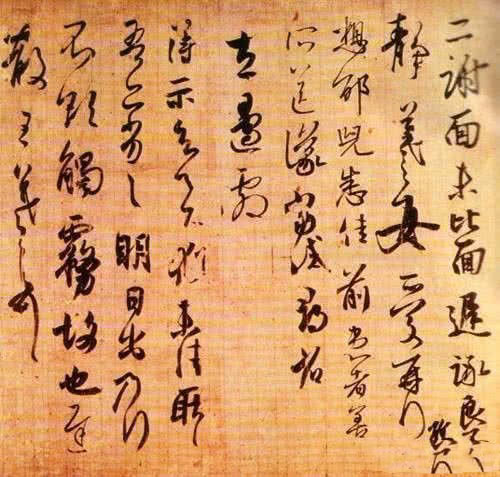 二謝面未比面遲詠良不
靜羲之女愛再拜
想邰兒悉佳前患者善
所送議當試尋省
左邊劇
得示知足下猶未佳耿耿
吾亦劣劣明日出乃行
不欲觸霧故也遲
散王羲之頓首